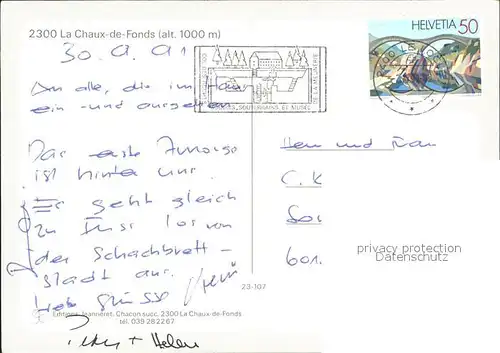 2300 La Chaux-de-Fonds (alt. 1000 m)
HELVETIA 50
30.9.91
An alle, die im Haus
ein - und ausgehen
SOUTERRAINS ET MUSÉE
DE LA MEUNERIE
Das erste
ist hinter uns.
Es geht gleich
zu Fuss los von
der Schachbrett-
stadt aus.
Liebe Grüsse
Herr und Frau
C. K
601.
privacy protection
Datenschutz
23-107
Editions Jeanneret, Chacon succ. 2300 La Chaux-de-Fonds
tél. 039 282267
Peter + Helen